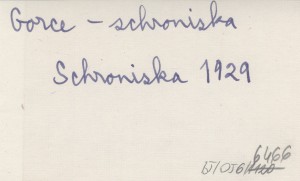 Gorce – schroniska
Schroniska 1929
6466